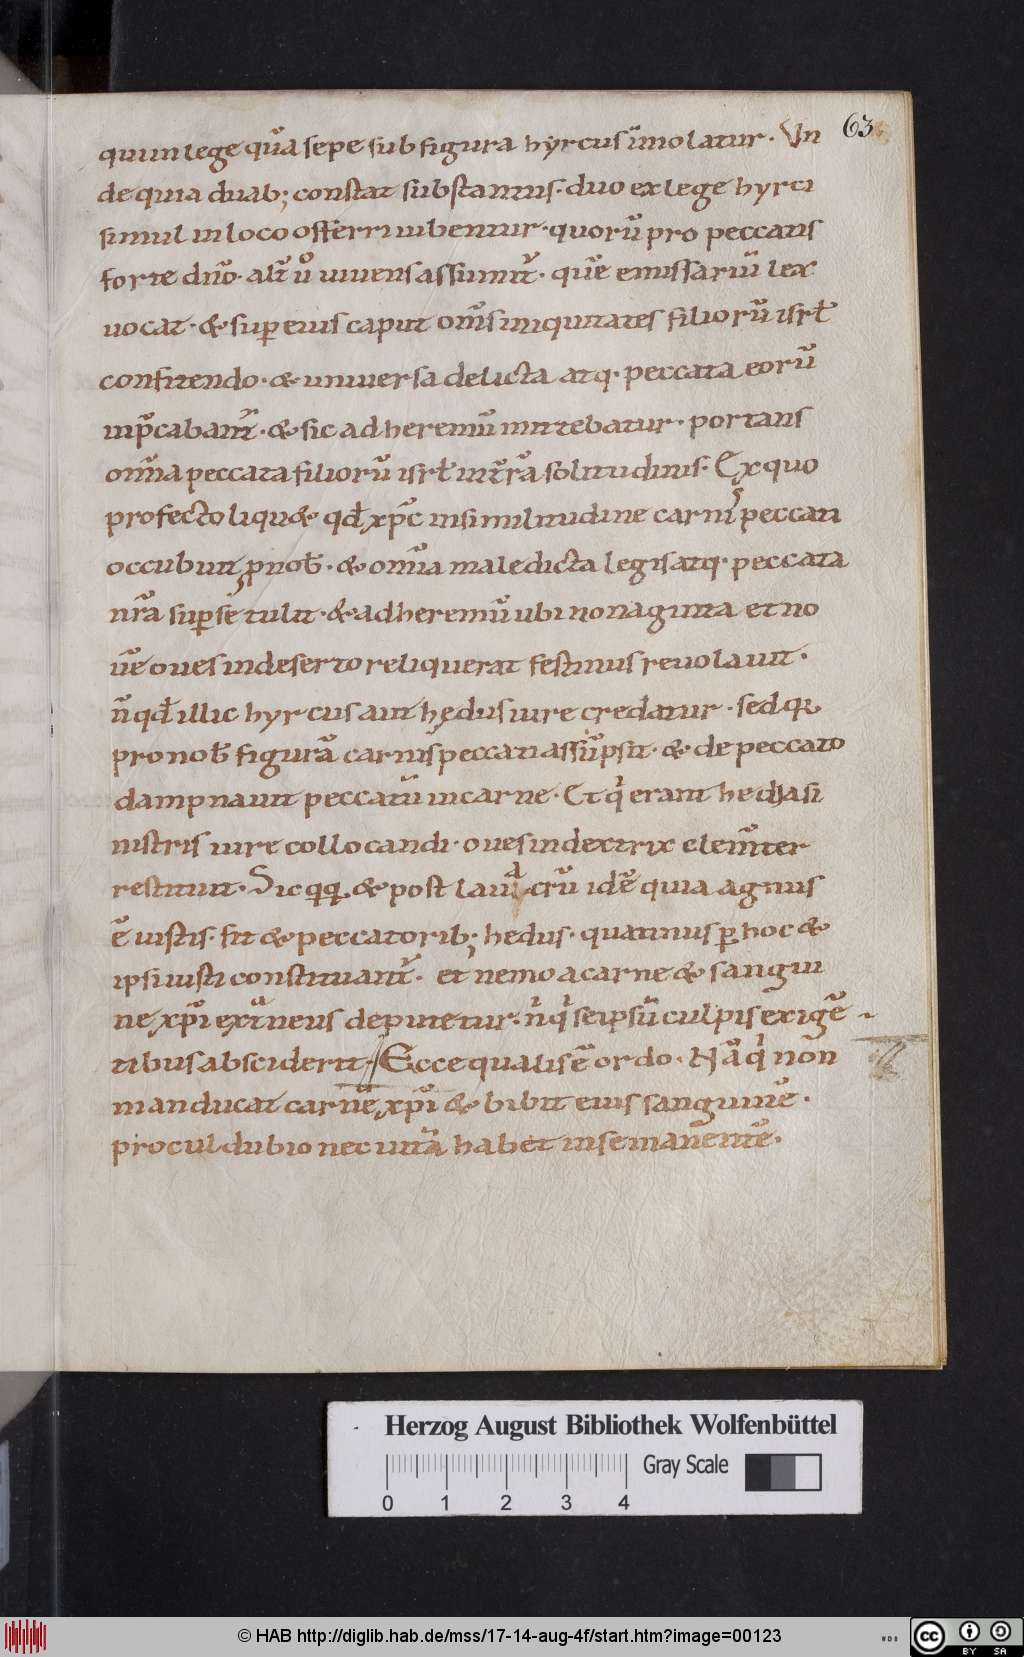 63
qui in lege qūa sepe sub figura hyrcus īmolatur. Vn
de quia duab; constat substantiis. duo ex lege hyrci
simul in loco offerri iubentur. quorū pro peccatis
forte dn̄o. alt̄ ū uiuens assumit᷑. quē emissariū lex
uocat. & sup eius caput om̄s iniquitates filiorū isrł
confitendo. & uniuersa delicta atq. peccata eorū
inp̄cabant᷑. & sic ad heremū mittebatur. portans
om̄ia peccata filiorū isrł in t̄rā solitudinis. Ex quo
profecto liqu& qđ xp̄c in similitudine carnis peccati
occubuit, p nob̄. & om̄ia maledicta legis atq. peccata
nr̄a sup se tulit. & ad heremū ubi nonaginta et no
uē oues in deserto reliquerat festinus reuolauit.
n̄ qđ illic hyrcus aut hędus iure credatur. sed q
pro nob̄ figurā carnis peccati assūpsit. & de peccato
dampnauit peccatū in carne. Et q̇ erant hedi a si
nistris iure collocandi. oues in dextrix clem̄ter
restituit. Sic qq. & post lauacrū idē quia agnus
ē iustis. fit & peccatorib; hedus. quatinus p hoc &
ipsi iusti constituant᷑. et nemo a carne & sangui
ne xp̄i extraneus deputetur. n̄ q̇ seipsū culpis exigē
tibus absciderit. Ecce qualis ē ordo. Nā q̇ non
manducat carnē xp̄i & bibit eius sanguinē.
procul dubio nec uitā habet in se manentē.
Herzog August Bibliothek Wolfenbüttel
Gray Scale
0 1 2 3 4
© HAB http://diglib.hab.de/mss/17-14-aug-4f/start.htm?image=00123
WDB
cc BY SA